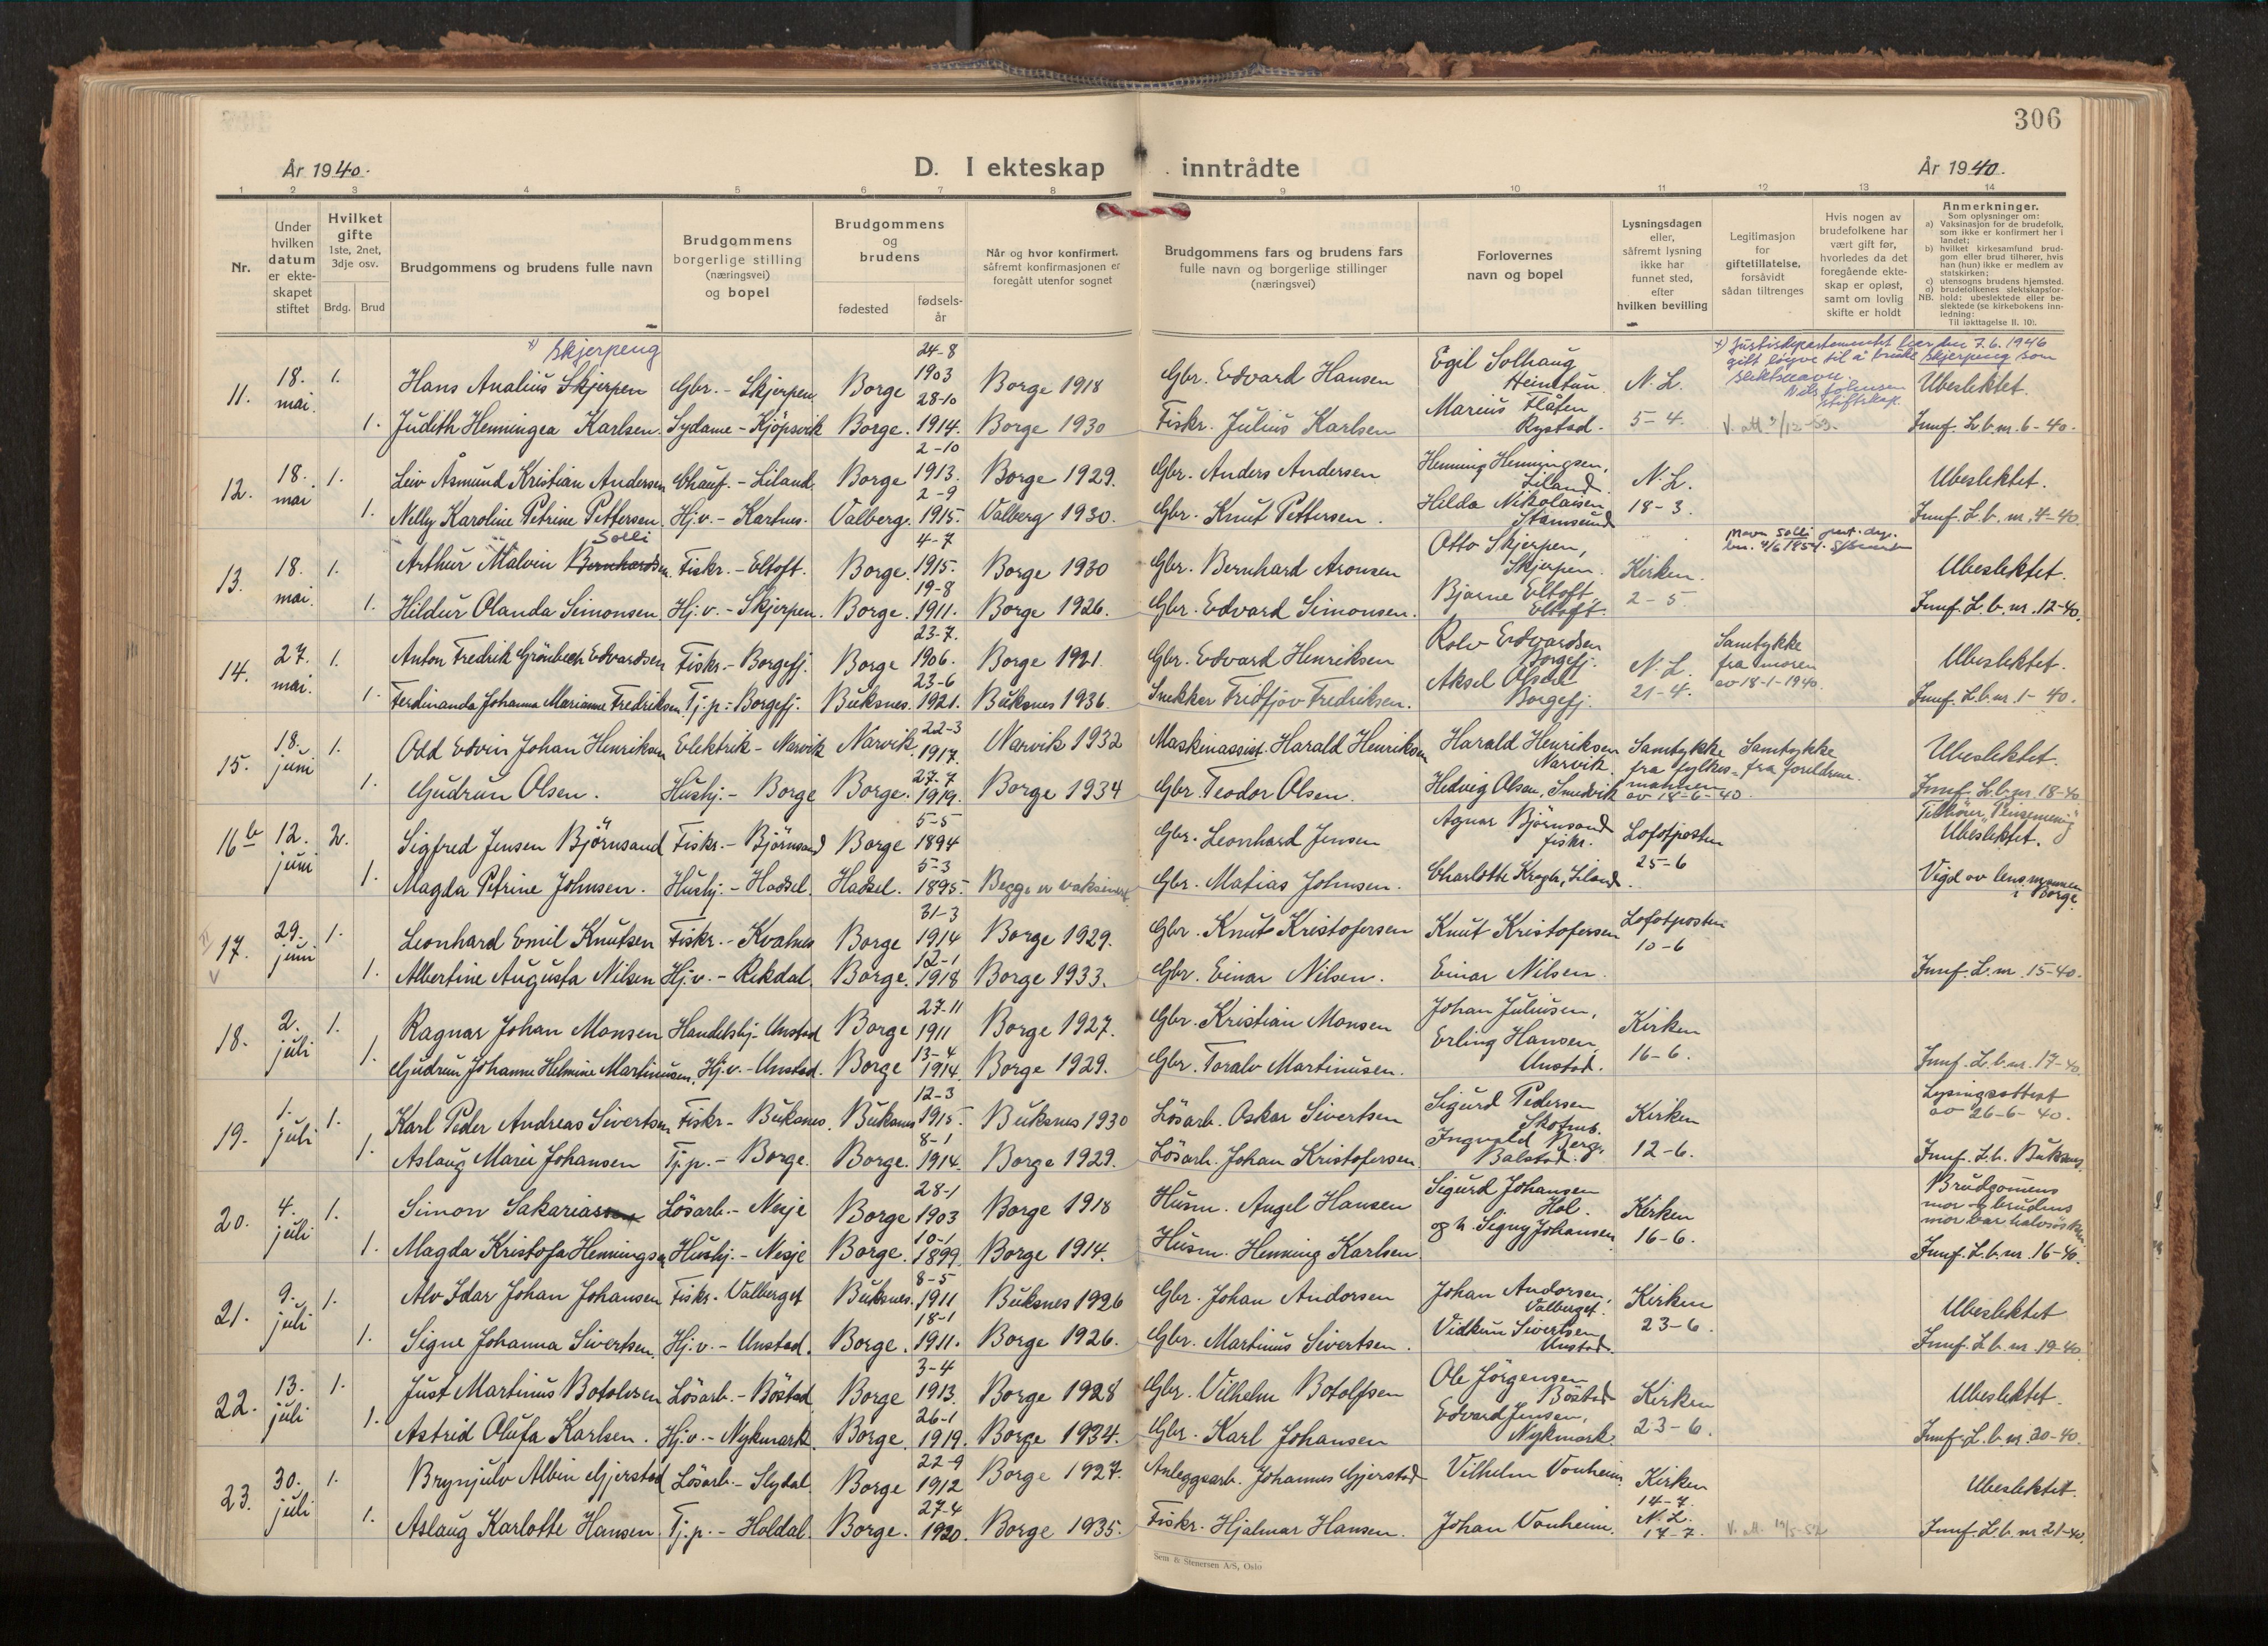 306
År 1940.
D. I ekteskap inntrådte
År 1940.
1 2 3 4 5 6 7 8 9 10 11 12 13 14
Nr.
Under hvilken datum er ekteskapet stiftet
Hvilket gifte
1ste, 2net, 3dje osv.
Brdg. Brud
Brudgommens og brudens fulle navn
Brudgommens borgerlige stilling (næringsvei) og bopel
Brudgommens og brudens
fødested
fødselsår
Når og hvor konfirmert.
såfremt konfirmasjonen er foregått utenfor sognet
Brudgommens fars og brudens fars fulle navn og borgerlige stillinger (næringsvei)
Forlovernes navn og bopel
Lysningsdagen eller, såfremt lysning ikke har funnet sted, efter hvilken bevilling
Legitimasjon for giftetillatelse, forsåvidt sådan tiltrenges
Hvis nogen av brudefolkene har vært gift før, hvorledes da det foregående ekteskap er opløst, samt om lovlig skifte er holdt
Anmerkninger.
Som oplysninger om:
a) Vaksinasjon for de brudefolk, som ikke er konfirmert her i landet;
b) hvilket kirkesamfund brudgom eller brud tilhører, hvis han (hun) ikke er medlem av statskirken;
c) utensogns brudens hjemsted.
d) brudefolkenes slektskapsforhold: ubeslektede eller beslektede (se kirkebokens innledning:
NB.
Til iakttagelse II. 10).
x) Skjerpeng
11. 18. mai. 1. Hans Analius Skjerpen Gbr. - Skjerpen. Borge 24-8 1903 Borge 1918 Gbr. Edvard Hansen Egil Solhaug Heimtun N. L. Ubeslektet.
x) Justisdepartementet har den 7.6.1946 gitt løyve til å bruke Skjerpeng som slektsnavn.
1. Judith Henningea Karlsen. Sydame - Kjöpsvik Borge. 28-10 1914. Borge 1930 Fiskr. Julius Karlsen Marius Flåten Rystad. 5-4. Innf. L. b. nr. 6-40.
12. 18. mai 1. Leiv Åsmund Kristian Andersen Chauf. - Liland. Borge 2-10 1913. Borge 1929. Gbr. Anders Andersen Henning Henningsen, Liland. N. L. Ubeslektet.
1. Nelly Karoline Petrine Pettersen. Hj.v. - Kartnes. Valberg. 2-9 1915. Valberg 1930. Gbr. Knut Pettersen. Hilda Nikolaisen Stamsund 18-3. Innf. L. b. nr. 4-40.
Solli
13. 18. mai. 1. Arthur Malvin Bernhardsen. Fiskr. - Eltoft. Borge. 4-7 1915. Borge 1930 Gbr. Bernhard Aronsen Otto Skjerpen, Skjerpen. Kirken. Ubeslektet.
1. Hildur Olanda Simonsen Hj.v. - Skjerpen. Borge. 19-8 1911. Borge 1926. Gbr. Edvard Simonsen. Bjarne Eltoft, Eltoft. 2-5 Innf. L. b. nr. 12-40.
14. 27. mai. 1. Anton Fredrik Grönbech Edvardsen Fiskr. - Borgefj. Borge 23-7. 1906. Borge 1921. Gbr. Edvard Henriksen Rolv Edvardsen Borgefj. N. L. Samtykke fra moren av 18-1-1940. Ubeslektet.
1. Ferdinanda Johanna Marianne Fredriksen. Tj.p. - Borgefj. Buksnes. 23-6 1921. Buksnes 1936. Snekker Fridtjov Fredriksen. Aksel Olsen Borgefj. 21-4. Innf. L. b. nr. 1-40.
15. 18. juni 1. Odd Edvin Johan Henriksen Elektrik - Narvik Narvik 22-3 1917. Narvik 1932 Maskinassist. Harald Henriksen Harald Henriksen Narvik. Samtykke fra fylkesmannen av 18-6-40 Samtykke fra foreldrene. Ubeslektet.
1. Gudrun Olsen. Hushj. - Borge Borge. 27-7 1919. Borge 1934 Gbr. Teodor Olsen. Hedvig Olsen, Smedvik Innf. L. b. nr. 18-40
16b 12. juni 2. Sigfred Jensen Björnsand Fiskr. - Björnsand Borge 5-5 1894 Gbr. Leonhard Jensen Agnar Björnsand fiskr. Lofotposten 25-6 Ubeslektet.
1. Magda Petrine Johnsen. Hushj. - Hadsel. Hadsel. 5-3 1895 Begge er vaksinert. Gbr. Matias Johnsen. Charlotte Krogh, Liland. Vigd av lensmannen i Borge.
17. 29. juni 1. Leonhard Emil Knutsen Fiskr. - Kvalnes Borge 31-3 1914 Borge 1929. Gbr. Knut Kristofersen Knut Kristofersen Lofotposten 10-6
1. Albertine Augusta Nilsen Hj.v. - Rekdal. Borge. 12-1 1918 Borge 1933. Gbr. Einar Nilsen. Einar Nilsen. Innf. L. nr. 15-40.
18. 2. juli 1. Ragnar Johan Monsen Handelshj. Unstad Borge 27-11 1911 Borge 1927. Gbr. Kristian Monsen Johan Juliusen, Kirken
1. Gudrun Johanne Helmine Martinusen. Hj.v. - Unstad. Borge 13-4 1914. Borge 1929. Gbr. Toralv Martinusen. Erling Hansen, Unstad. 16-6. Innf. L. b. nr. 17-40.
19. 1. juli 1. Karl Peder Andreas Sivertsen Fiskr. - Buksnes. Buksnes 12-3 1915 Buksnes 1930 Lösarb. Oskar Sivertsen Sigurd Pedersen Kirken Lysingsattest av 26-6-40.
1. Aslaug Marie Johansen Tj.p. - Borge. Borge. 8-1 1914. Borge 1929. Lösarb. Johan Kristofersen. Ingvald Berg, Balstad. 12-6. Innf. L. b. Buksnes.
20. 4. juli 1. Simon Sakariassen Lösarb. - Nesje Borge 28-1 1903 Borge 1918 Husm. Angel Hansen Sigurd Johansen Hol. Kirken Brudgomens mor og brudens mor var halvsösken
1. Magda Kristofa Henningsen Hushj. - Nesje Borge. 10-1 1899. Borge 1914. Husm. Henning Karlsen og h. Signy Johansen 16-6. Innf. L. b. nr. 16-40.
21. 9. juli 1. Alv Idar Johan Johansen Fiskr. Valberget Buksnes. 8-5 1911 Buksnes 1926 Gbr. Johan Andorsen Johan Andorsen, Valberget. Kirken Ubeslektet
1. Signe Johanna Sivertsen. Hj.v. - Unstad. Borge. 18-1 1911. Borge 1926. Gbr. Martinus Sivertsen. Vidkun Sivertsen Unstad. 23-6. Innf. L. b. nr. 19-40
22. 13. juli 1. Just Martinus Botolvsen Lösarb. - Böstad Borge 3-4 1913. Borge 1928 Gbr. Vilhelm Botolfsen Ole Jörgensen Böstad Kirken Ubeslektet.
1. Astrid Olufa Karlsen. Hj.v. - Nykmark. Borge. 26-1 1919. Borge 1934. Gbr. Karl Johansen Edvard Jensen, Nykmark. 23-6. Innf. L. b. nr. 20-40.
23. 30. juli 1. Brynjulv Albin Gjerstad Lösarb. - Slydal. Borge 22-9 1912 Borge 1927. Anleggsarb. Johannes Gjerstad Vilhelm Vonheim. Kirken 14-7. Ubeslektet.
1. Aslaug Karlotte Hansen. Tj.p. - Holdal. Borge. 27-4 1920. Borge 1935. Fiskr. Hjalmar Hansen. Johan Vonheim. N. L. 14-7. Innf. L. b. nr 21-40.
Sem & Stenersen A/S, Oslo